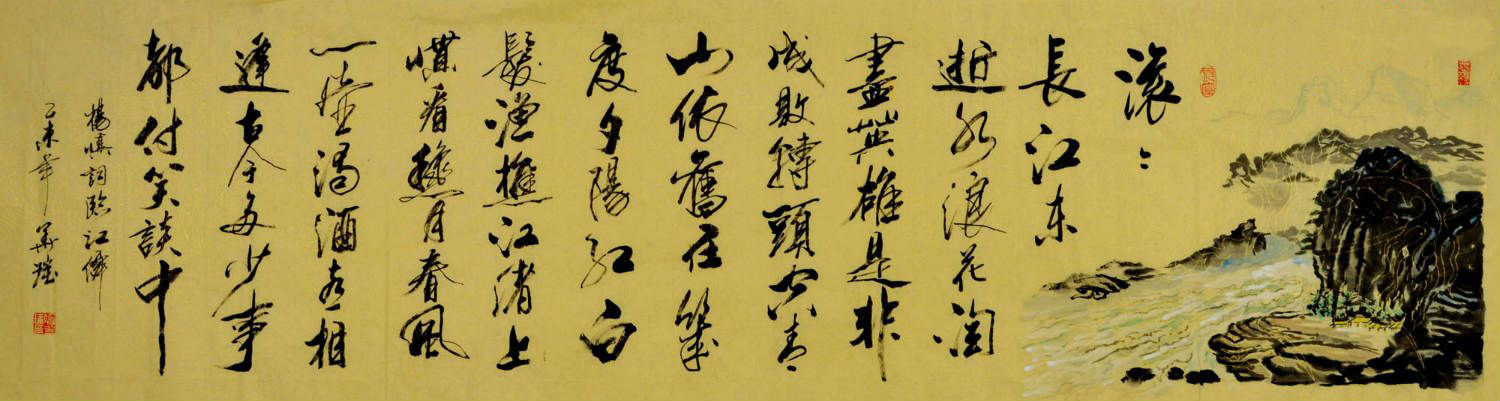 滚々
長江东
逝水浪花淘
盡英雄是非
成敗轉頭空青
山依舊在幾
度夕陽红白
髮漁樵江渚上
慣看穐月春風
一壺濁酒喜相
逢古今多少事
都付笑談中
楊慎詞臨江僊
乙未年